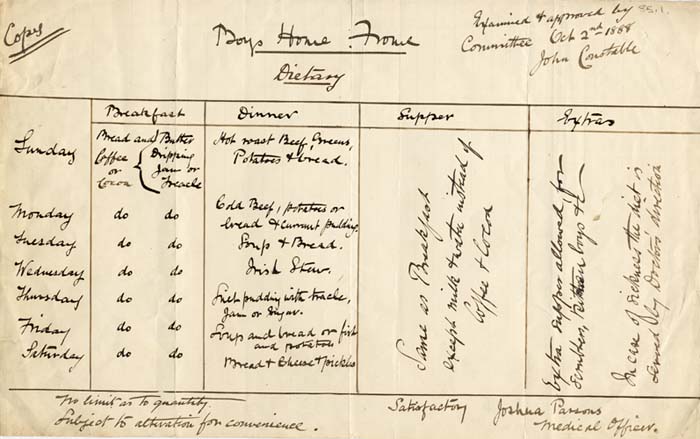 Copy
Boys Home. Frome
Dietary
Examined & approved by
Committee Oct 2nd 1888
John Constable
551.
Breakfast Dinner Supper Extras
Sunday
Bread and Butter
Coffee or Cocoa { Dripping Jam or Treacle
Hot roast Beef, Greens,
Potatoes & bread.
Monday do do Cold Beef, potatoes or
bread & currant pudding.
Tuesday do do Soup & Bread.
Wednesday do do Irish Stew.
Thursday do do Suet pudding with treacle,
Jam or Sugar.
Friday do do Soup and bread or fish
and potatoes
Saturday do do Bread & Cheese & pickles
Same as Breakfast
except milk & water instead of
Coffee & Cocoa
Extra supper allowed for
boys &c
In case of sickness the diet is
by Doctor's direction
No limit as to quantity
Subject to alteration for convenience.
Satisfactory Joshua Parsons
Medical Officer.